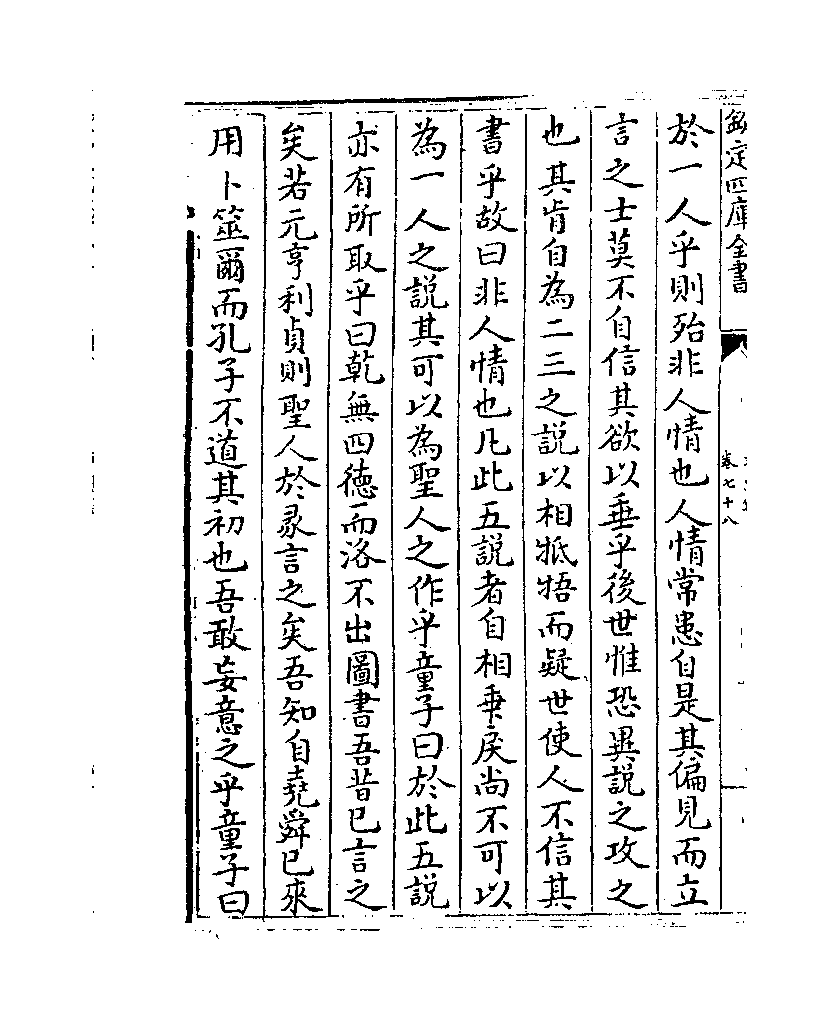 欽定四庫全書
卷七十八
於一人乎則殆非人情也人情常患自是其偏見而立
言之士莫不自信其欲以垂乎後世惟恐異說之攻之
也其肯自為二三之說以相抵牾而疑世使人不信其
書乎故曰非人情也凡此五說者自相乖戾尚不可以
為一人之說其可以為聖人之作乎童子曰於此五說
亦有所取乎曰乾無四德而洛不出圖書吾昔已言之
矣若元亨利貞則聖人於彖言之矣吾知自堯舜已來
用卜筮爾而孔子不道其初也吾敢妄意之乎童子曰